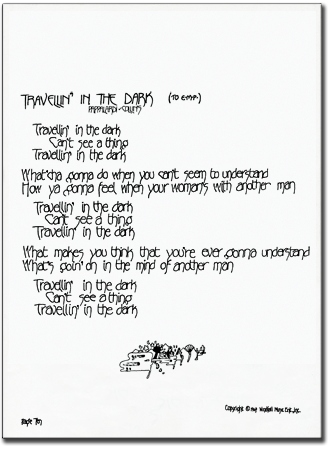 TRAVELLIN' IN THE DARK (TO E.M.P.)
PAPPALARDI-COLLINS
Travellin' in the dark
Can't see a thing
Travellin' in the dark
What'cha gonna do when you can't seem to understand
How ya gonna feel when your woman's with another man
Travellin' in the dark
Can't see a thing
Travellin' in the dark
What makes you think that you're ever gonna understand
What's goin' on in the mind of another man
Travellin' in the dark
Can't see a thing
Travellin' in the dark
Copyright © Windfall Music Ent., Inc.
Page Ten